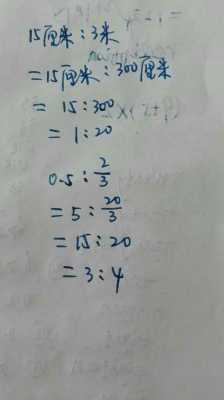 15厘米:3米
=15厘米:300厘米
= 15:300
= 1:20
0.5:2/3
=5:20/3
=15:20
=3:4